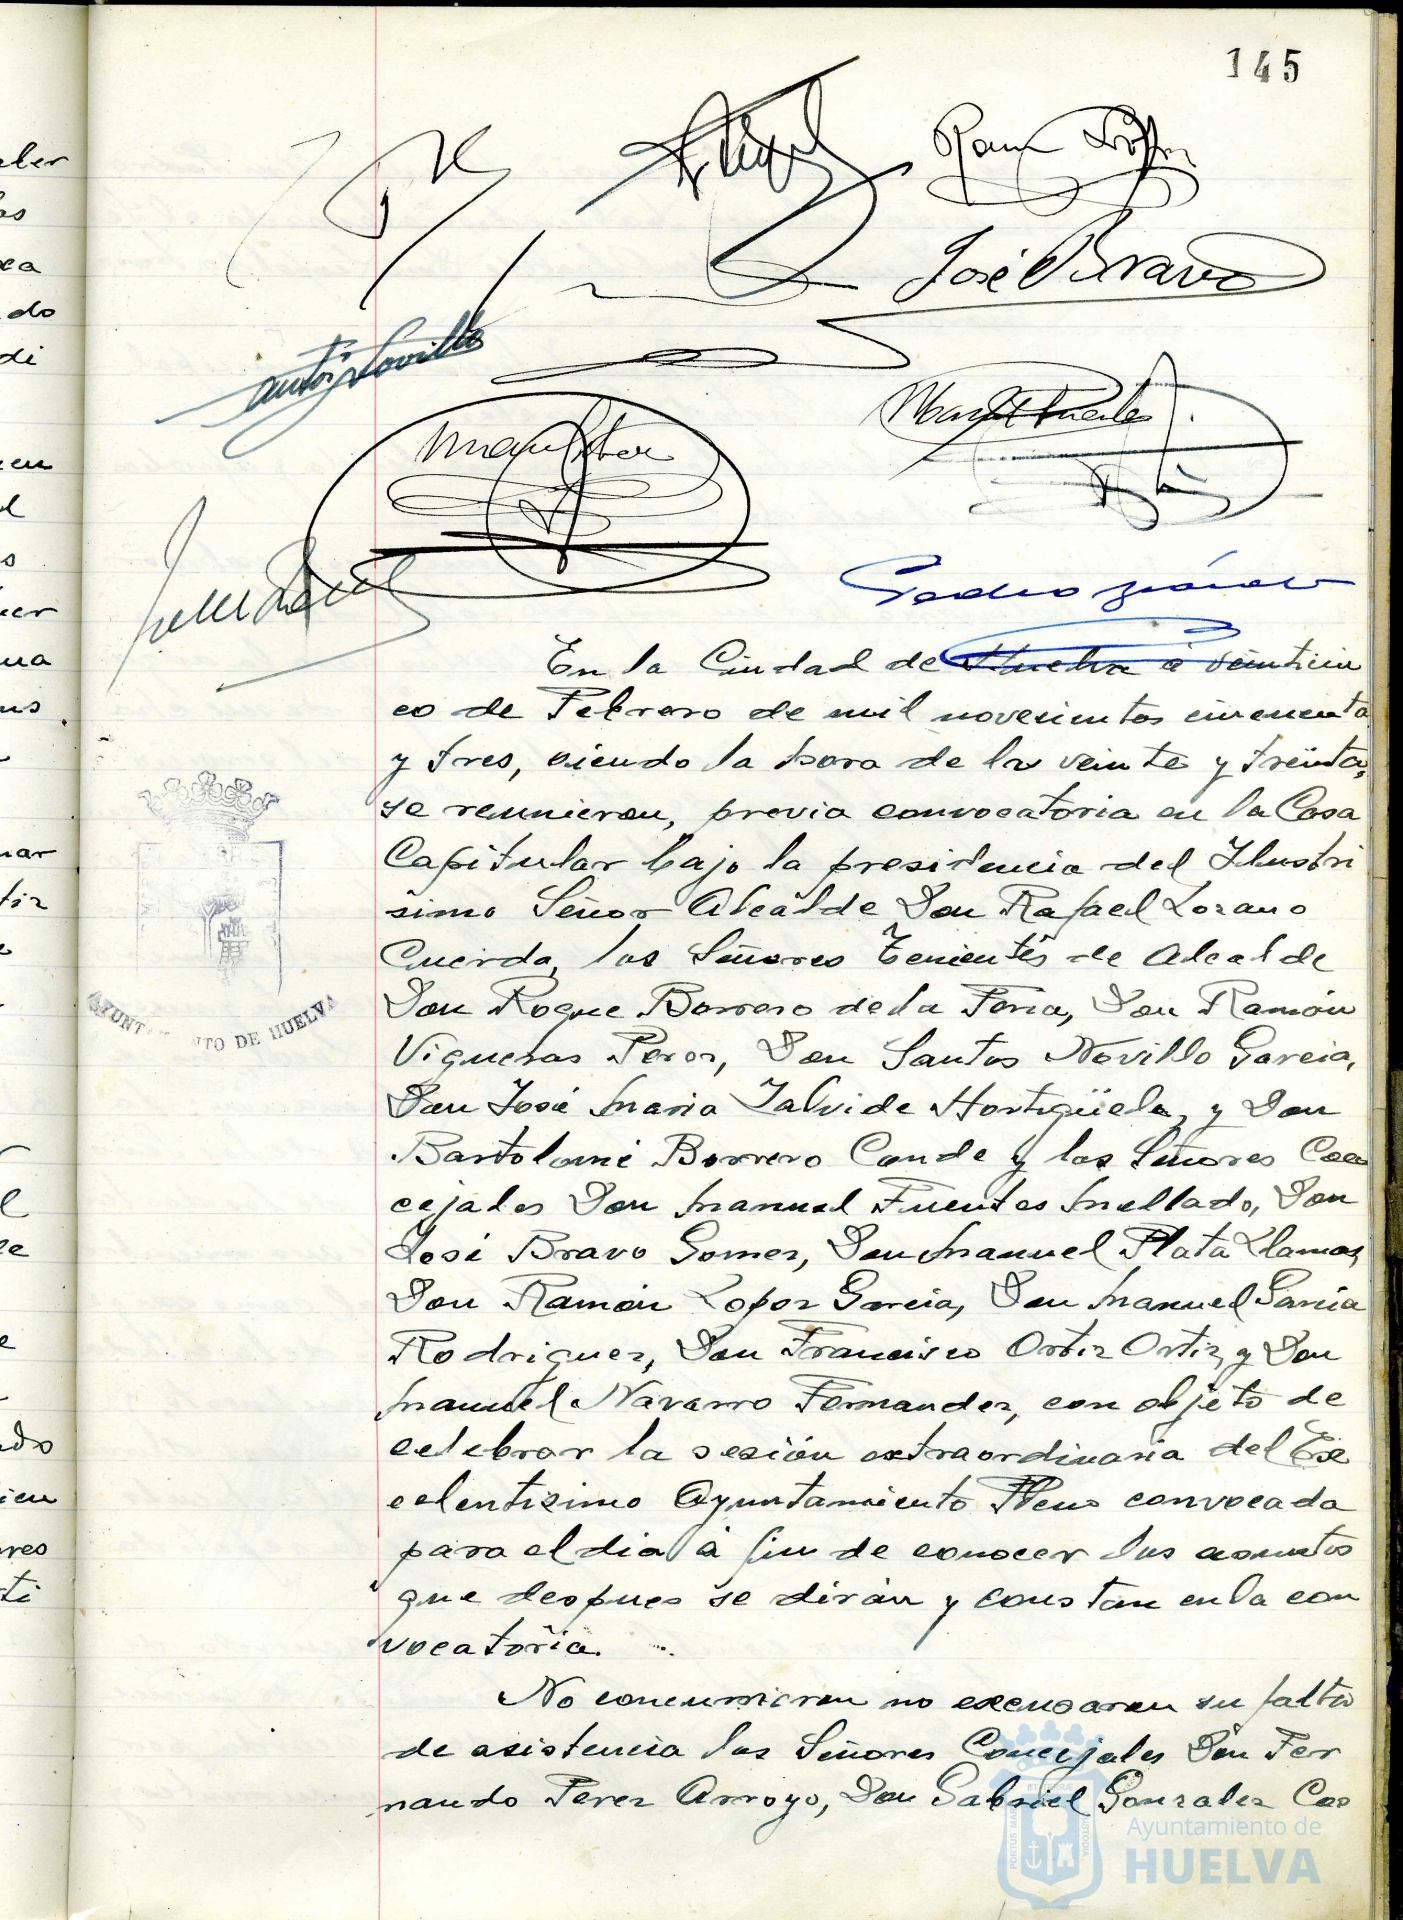 145
Ramon López
José Bravo
Manuel Fuentes
En la Ciudad de Huelva a veinticin
co de Febrero de mil novecientos cincuenta
y tres, siendo la hora de las veinte y treinta,
se reunieron, previa convocatoria en la Casa
Capitular bajo la presidencia del Ilustri
simo Señor Alcalde Don Rafael Lozano
Cuerda, los Señores Tenientes de Alcalde
Don Roque Borrero de la Feria, Don Ramón
Vigueras Perez, Don Santos Novillo Garcia,
Don José Maria Zalvide Hortigüela, y Don
Bartolomé Borrero Conde y los Señores Con
cejales Don Manuel Fuentes Mellado, Don
José Bravo Gomez, Don Manuel Plata Llamas,
Don Ramón Lopez Garcia, Don Manuel Garcia
Rodriguez, Don Francisco Ortiz Ortiz, y Don
Manuel Navarro Fernandez, con objeto de
celebrar la sesión extraordinaria del Ex
celentisimo Ayuntamiento Pleno convocada
para el dia à fin de conocer los asuntos
que despues se dirán y constan en la con
vocatoria.
No concurrieron no excusaron su falta
de asistencia los Señores Concejales Don Fer
nando Perez Arroyo, Don Gabriel Gonzalez Cas
AYUNTAMIENTO DE HUELVA
Ayuntamiento de
HUELVA